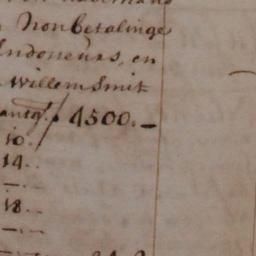 Nonbetalinge
Indoneurs, en
Willem Smit
antg. 1500.—
10.
14..
—.—
18..
—.—